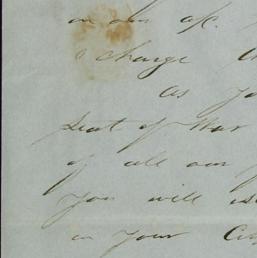 on our a/c.
& charge
As yo
Seat of War
of all our
you will
in your